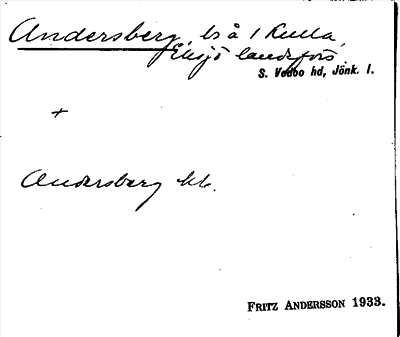 Andersberg, ls å 1 Kulla,
Eksjö landsförs.
S. Vedbo hd, Jönk. l.
+
Andersberg kk.
FRITZ ANDERSSON 1933.